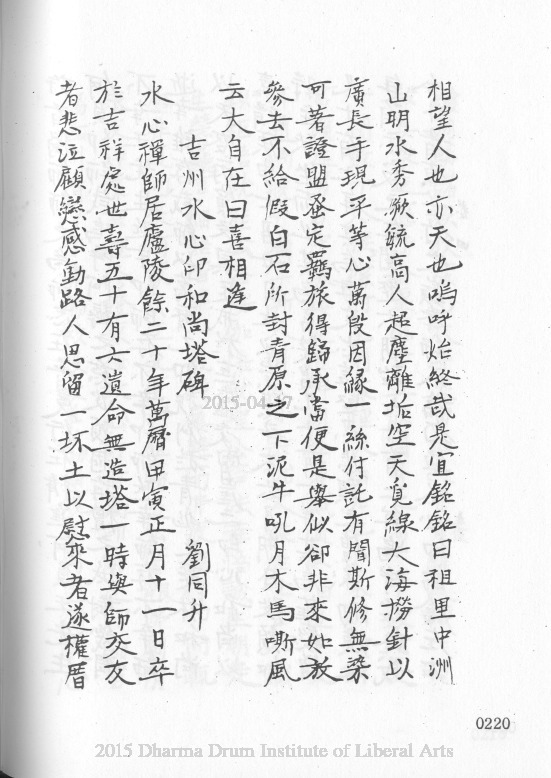 相望人也亦天也嗚呼始終哉是宜銘銘曰祖里中洲
山明水秀厥毓高人超塵離垢空天覓線大海撈針以
廣長手現平等心萬段因緣一絲付託有聞斯修無染
可著證盟蚤定羈旅得歸承當便是舉似卻非來如放
參去不給假白石所封青原之下泥牛吼月木馬嘶風
云大自在曰喜相逢
吉州水心印和尚塔碑 劉同升
水心禪師居廬陵餘二十年萬曆甲寅正月十一日卒
於吉祥處世壽五十有六遺命無造塔一時與師交友
者悲泣顧戀感動路人思留一坏土以慰來者遂權厝
2015-04-17
0220
2015 Dharma Drum Institute of Liberal Arts